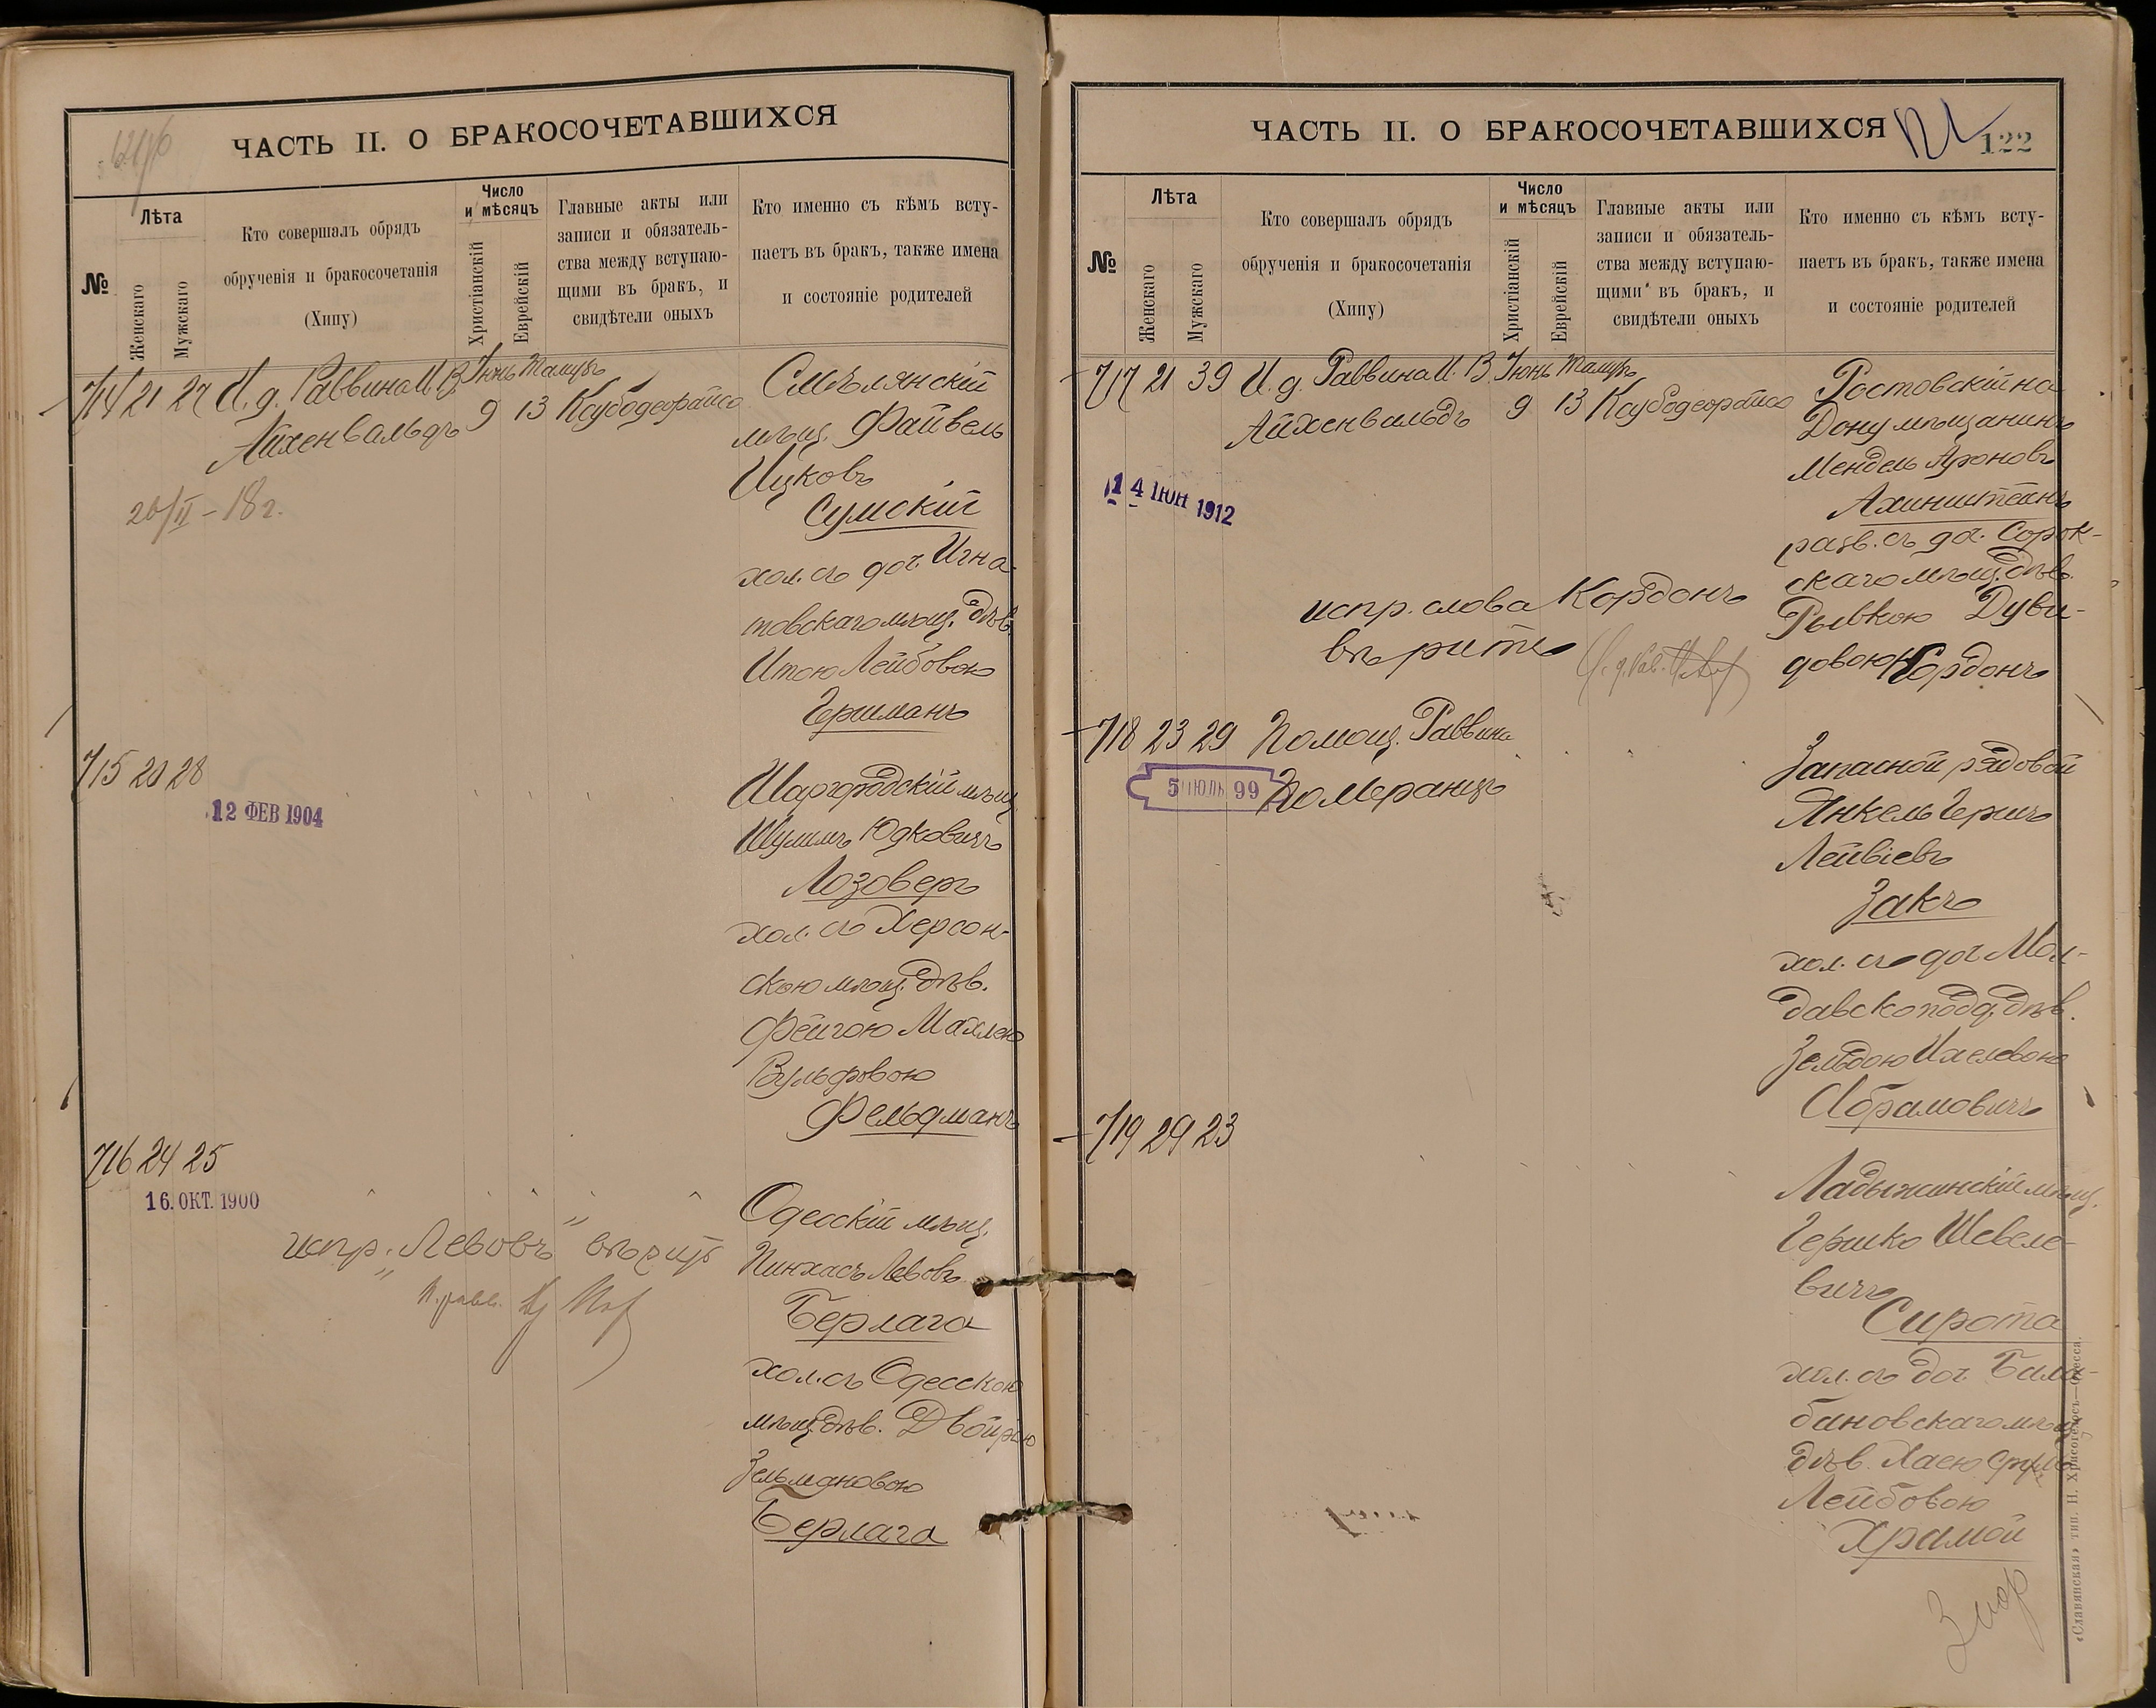 ЧАСТЬ II. О БРАКОСОЧЕТАВШИХСЯ
№
Лѣта
Женскаго
Мужскаго
Кто совершалъ обрядъ
обрученія и бракосочетанія
(Хипу)
Число
и мѣсяцъ
Христіанскій
Еврейскій
Главные акты или
записи и обязатель-
ства между вступаю-
щими въ бракъ, и
свидѣтели оныхъ
Кто именно съ кѣмъ всту-
паетъ въ бракъ, также имена
и состояніе родителей
714 21 27 И. д. Раввина И. В. Іюнь Тамузъ
Айхенвальдъ 9 13
Смѣлянскій
мѣщ. Файвель
Ицковъ
Сумскій
хол. съ доч. Игна-
товскаго мѣщ. дѣв.
Итою Лейбовою
Германъ
20/II - 18 г.
715 20 28
12 ФЕВ 1904
Шаргородскій мѣщ.
Шулимъ Юдковичъ
Лозоверъ
хол. съ Херсон-
скою мѣщ. дѣв.
Фейгою Махлею
Вульфовою
Фельдманъ
716 24 25
16. ОКТ. 1900
Одесскій мѣщ.
Пинхасъ Левовъ
Берлага
хол. съ Одесскою
мѣщ. дѣв. Двойрою
Зельмановою
Берлага
испр. „Левовъ" вѣрить
ЧАСТЬ II. О БРАКОСОЧЕТАВШИХСЯ
122
№
Лѣта
Женскаго
Мужскаго
Кто совершалъ обрядъ
обрученія и бракосочетанія
(Хипу)
Число
и мѣсяцъ
Христіанскій
Еврейскій
Главные акты или
записи и обязатель-
ства между вступаю-
щими въ бракъ, и
свидѣтели оныхъ
Кто именно съ кѣмъ всту-
паетъ въ бракъ, также имена
и состояніе родителей
717 21 39 И. д. Раввина И. В. Іюнь Тамузъ
Айхенвальдъ 9 13
14 ІЮН 1912
Ростовскій на
Дону мѣщанинъ
Мендель Ароновъ
Ахинштейнъ
разв. съ доч. Сорок-
скаго мѣщ. дѣв.
Рывкою Дуви-
довою Гордонъ
испр. слова Кордонъ
вѣрить
718 23 29 Помощ. Раввина
Померанцъ
5 ІЮЛЬ 99
Запасной рядовой
Янкель Гершъ
Лейвіевъ
Закъ
хол. съ доч. Мол-
давскоподд. дѣв.
Зельдою Ихелевою
Абрамовичъ
719 29 23
Ладыжинскій мѣщ.
Гершко Шевеле-
вичъ
Сирота
хол. съ доч. Бала-
бановскаго мѣщ.
дѣв. Хаею
Лейбовою
Храмой
«Славянская» тип. Н. Хрисогелосъ—Одесса.